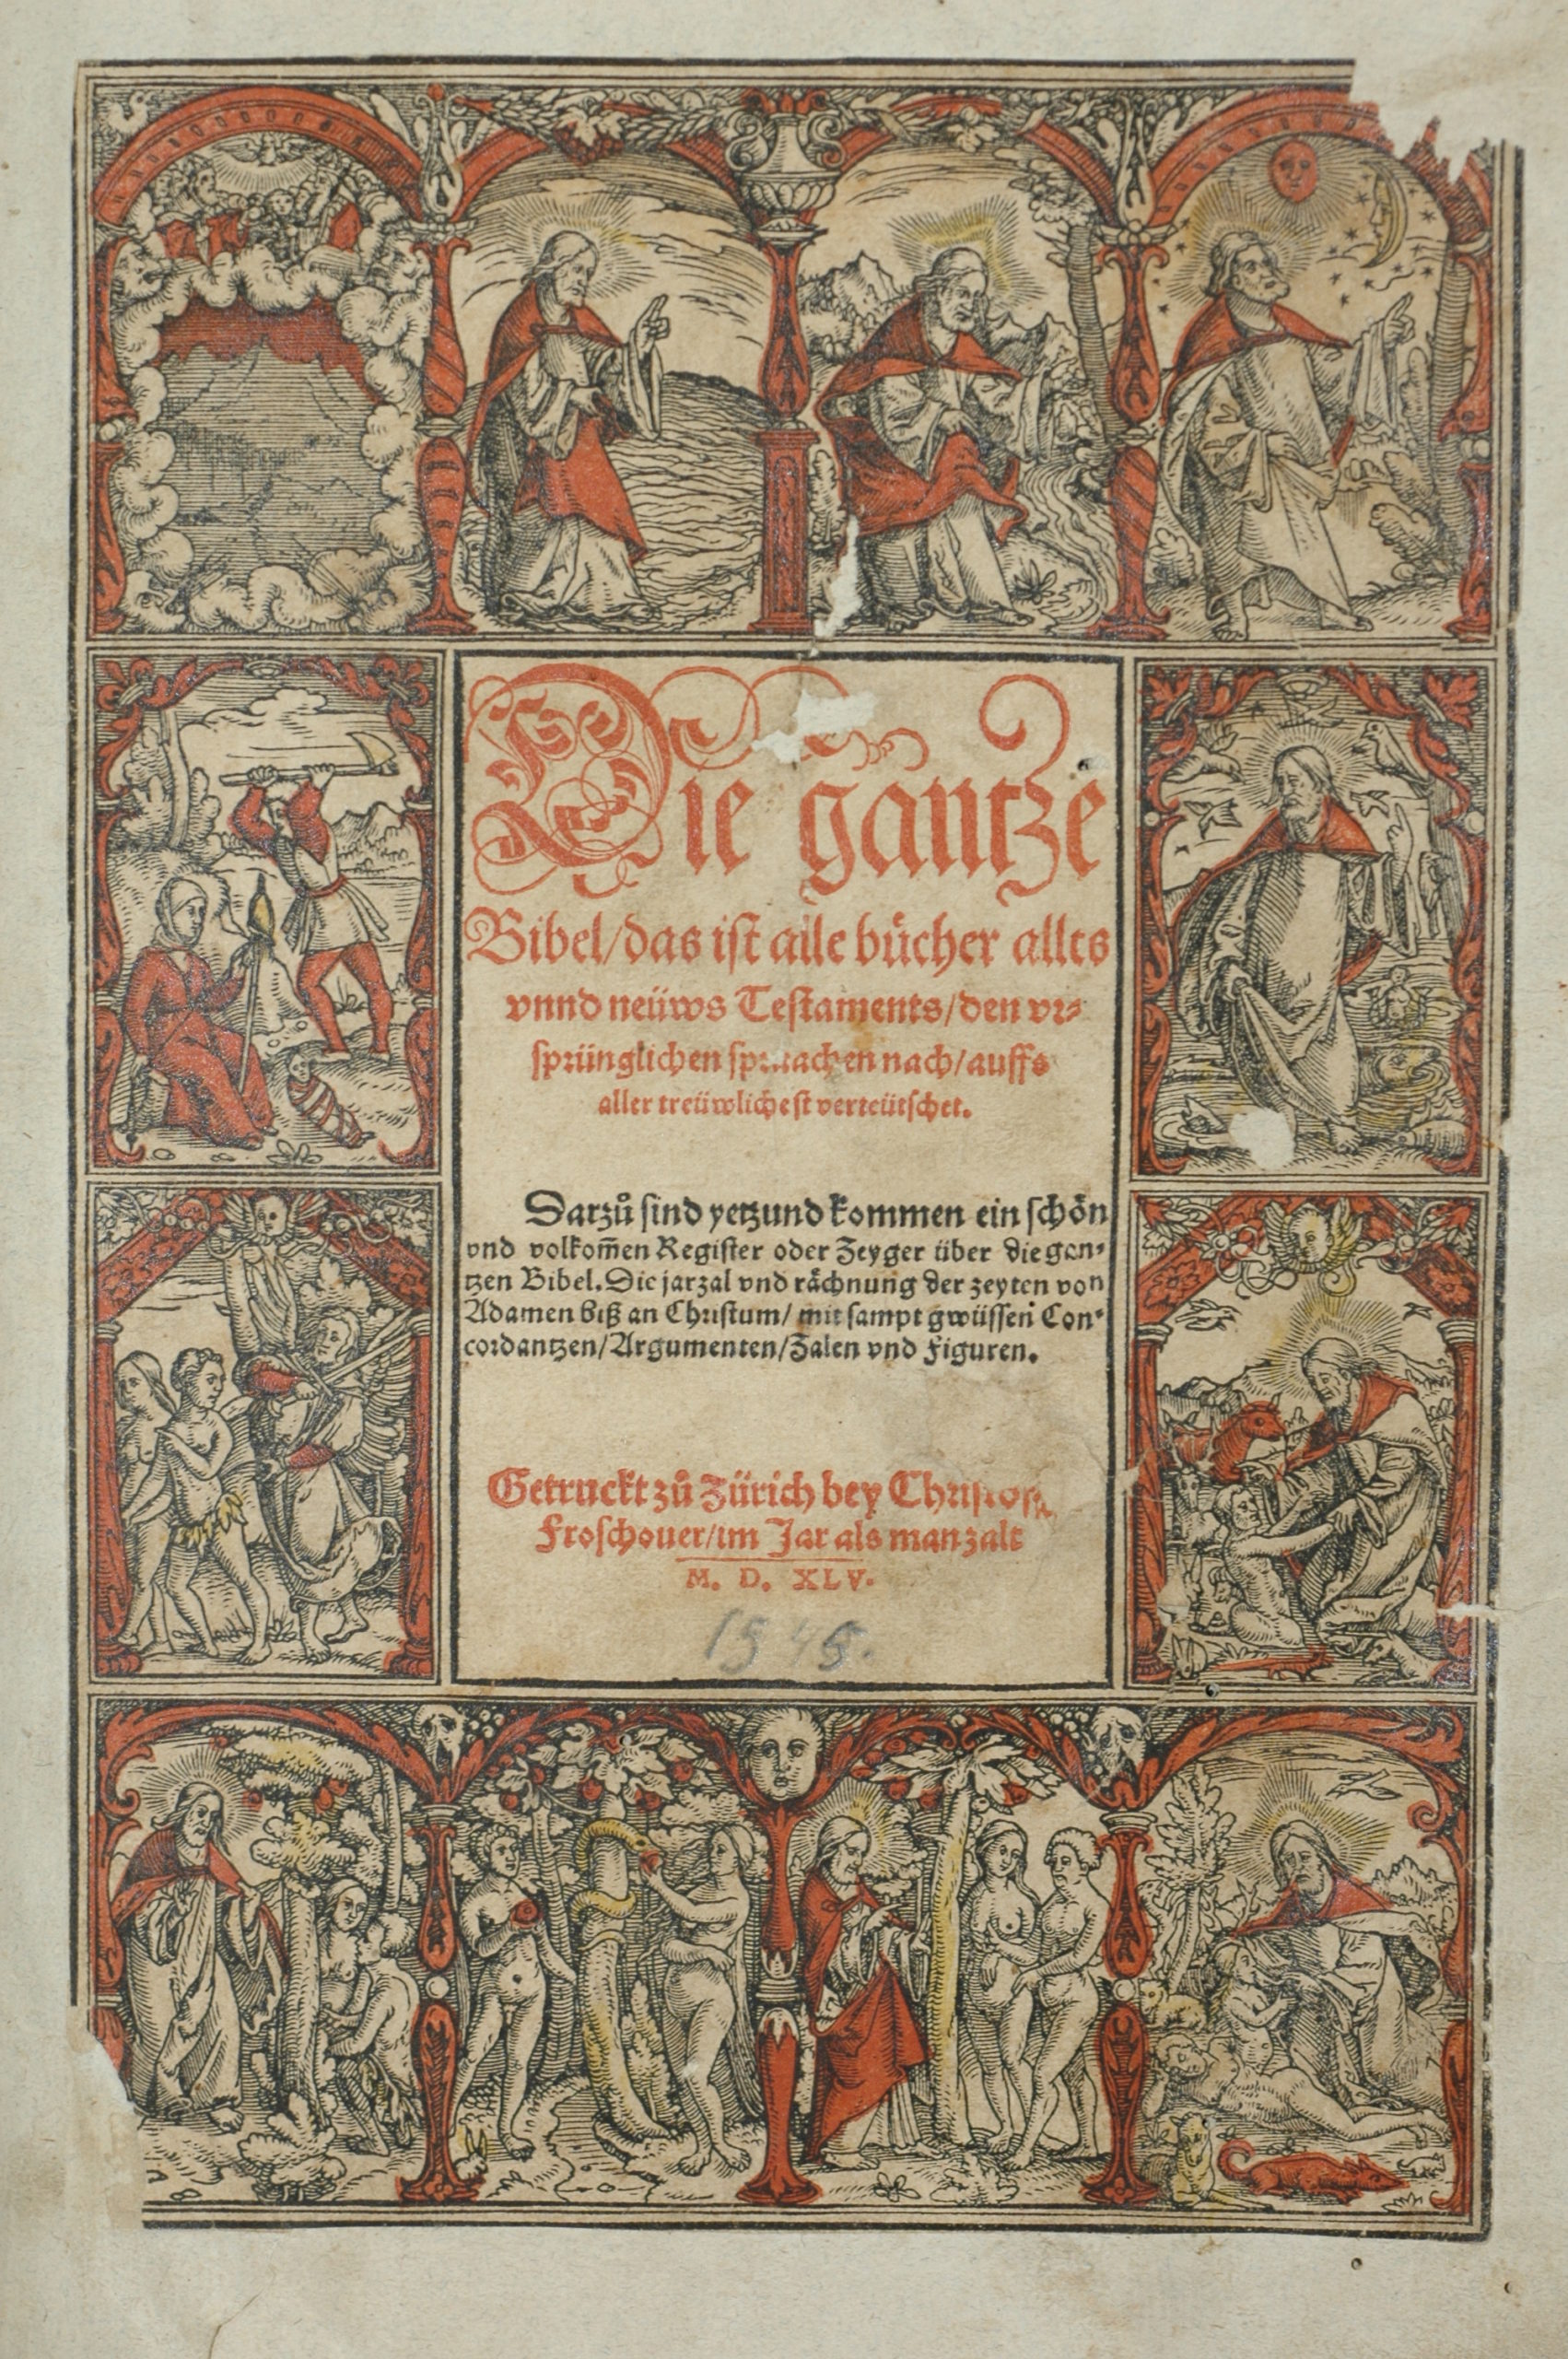 Die gantze
Bibel/das ist alle bücher allts
vnnd neüws Testaments/den vr⸗
sprünglichen spraachen nach/auffs
aller treüwlichest verteütschet.
Darzů sind yetzund kommen ein schön
vnd volkom̄en Register oder Zeyger über die gan⸗
tzen Bibel. Die jarzal vnd rächnung der zeyten von
Adamen biß an Christum/ mit sampt gwüssen Con⸗
cordantzen/Argumenten/Zalen vnd Figuren.
Getruckt zů Zürich bey Christof
Froschouer/im Jar als man zalt
M. D. XLV.
1545.